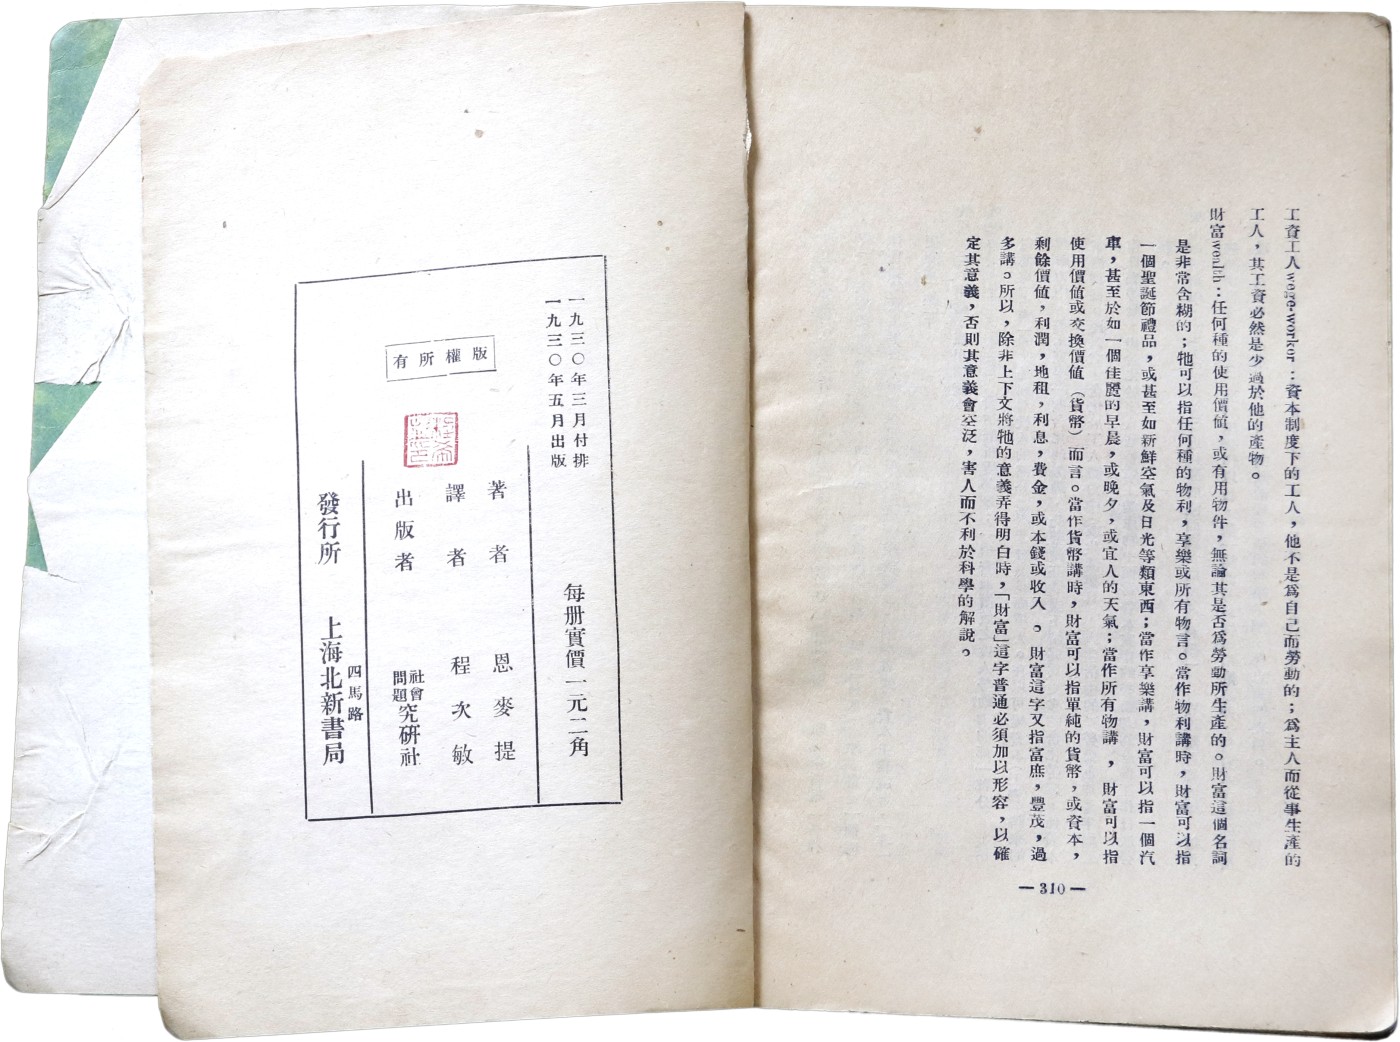 工資工人wage-worker：資本制度下的工人，他不是爲自己而勞動的；爲主人而從事生產的
工人，其工資必然是少過於他的產物。
財富wealth：任何種的使用價値，或有用物件，無論其是否爲勞動所生產的。財富這個名詞
是非常含糊的；牠可以指任何種的物利，享樂或所有物言。當作物利講時，財富可以指
一個聖誕節禮品，或甚至如新鮮空氣及日光等類東西；當作享樂講，財富可以指一個汽
車，甚至於如一個佳麗的早晨，或晚夕，或宜人的天氣；當作所有物講，財富可以指
使用價値或交換價値（貨幣）而言。當作貨幣講時，財富可以指單純的貨幣，或資本，
剩餘價値，利潤，地租，利息，費金，或本錢或收入。財富這字又指富庶，豐茂，過
多講。所以，除非上下文將牠的意義弄得明白時，「財富」這字普通必須加以形容，以確
定其意義，否則其意義會空泛，害人而不利於科學的解說。
—310—
一九三〇年三月付排
一九三〇年五月出版
每册實價一元二角
版權所有
著者 恩麥提
譯者 程次敏
出版者 社會問題究研社
發行所 上海四馬路北新書局